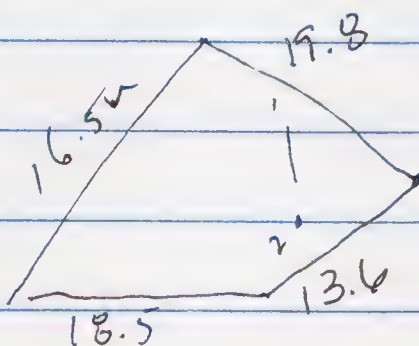 19.8
16.5
1
2
13.6
18.5